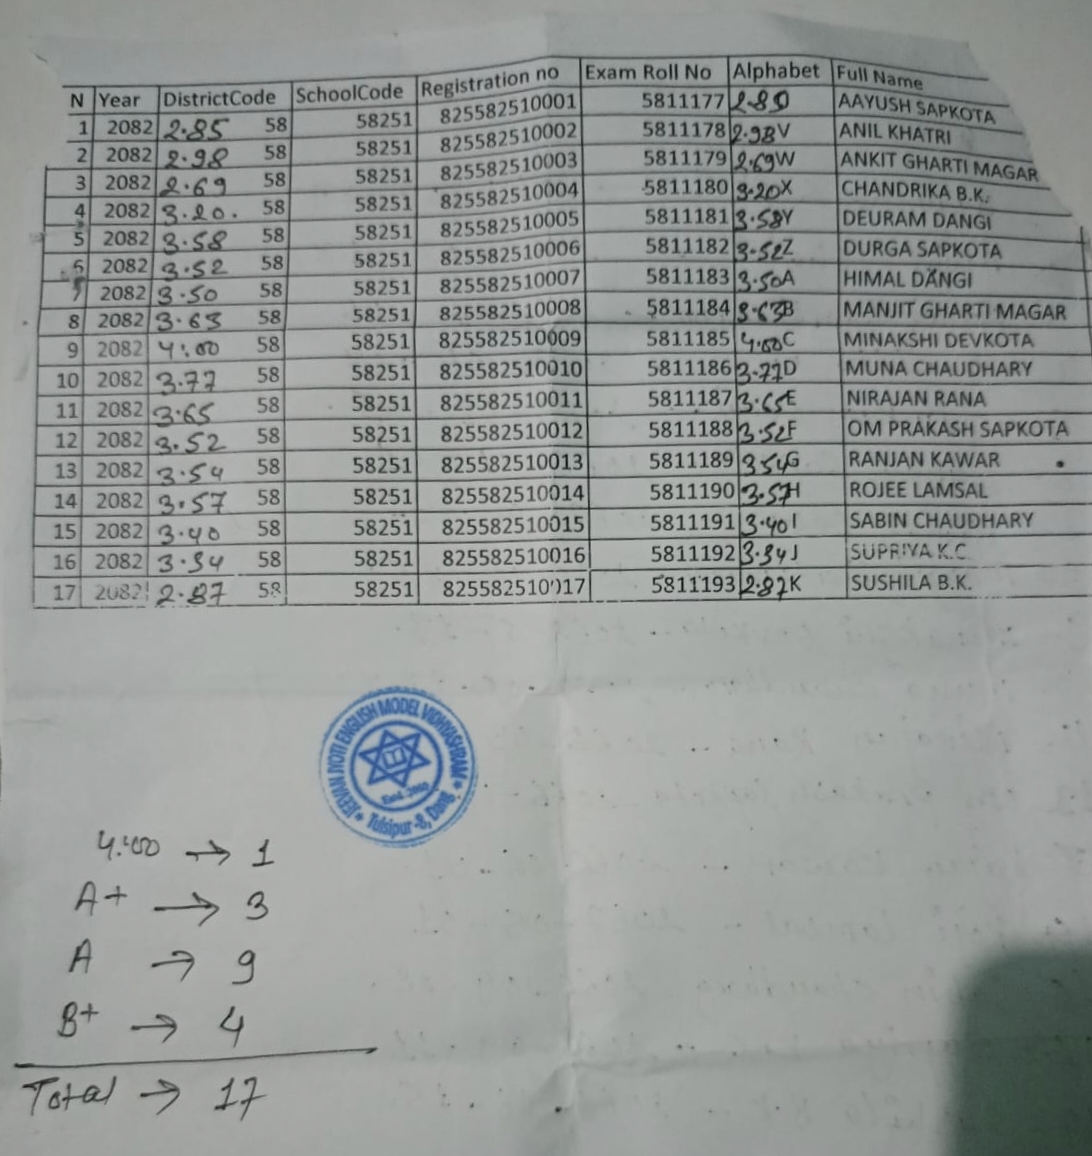 N Year DistrictCode SchoolCode Registration no Exam Roll No Alphabet Full Name
1 2082 2.85 58 58251 825582510001 5811177 2.85 AAYUSH SAPKOTA
2 2082 2.98 58 58251 825582510002 5811178 2.98 V ANIL KHATRI
3 2082 2.69 58 58251 825582510003 5811179 2.69 W ANKIT GHARTI MAGAR
4 2082 3.20. 58 58251 825582510004 5811180 3.20 X CHANDRIKA B.K.
5 2082 3.58 58 58251 825582510005 5811181 3.58 Y DEURAM DANGI
6 2082 3.52 58 58251 825582510006 5811182 3.52 Z DURGA SAPKOTA
7 2082 3.50 58 58251 825582510007 5811183 3.50 A HIMAL DANGI
8 2082 3.63 58 58251 825582510008 5811184 3.63 B MANJIT GHARTI MAGAR
9 2082 4.00 58 58251 825582510009 5811185 4.00 C MINAKSHI DEVKOTA
10 2082 3.77 58 58251 825582510010 5811186 3.77 D MUNA CHAUDHARY
11 2082 3.65 58 58251 825582510011 5811187 3.65 E NIRAJAN RANA
12 2082 3.52 58 58251 825582510012 5811188 3.52 F OM PRAKASH SAPKOTA
13 2082 3.54 58 58251 825582510013 5811189 3.54 G RANJAN KAWAR
14 2082 3.57 58 58251 825582510014 5811190 3.57 H ROJEE LAMSAL
15 2082 3.40 58 58251 825582510015 5811191 3.40 I SABIN CHAUDHARY
16 2082 3.34 58 58251 825582510016 5811192 3.34 J SUPRIYA K.C
17 2082 2.87 58 58251 825582510017 5811193 2.87 K SUSHILA B.K.
JEEVAN JYOTI ENGLISH MODEL VIDHYASHRAM
Estd.
Tulsipur-8, Dang
4.00 → 1
A+ → 3
A → 9
B+ → 4
Total → 17